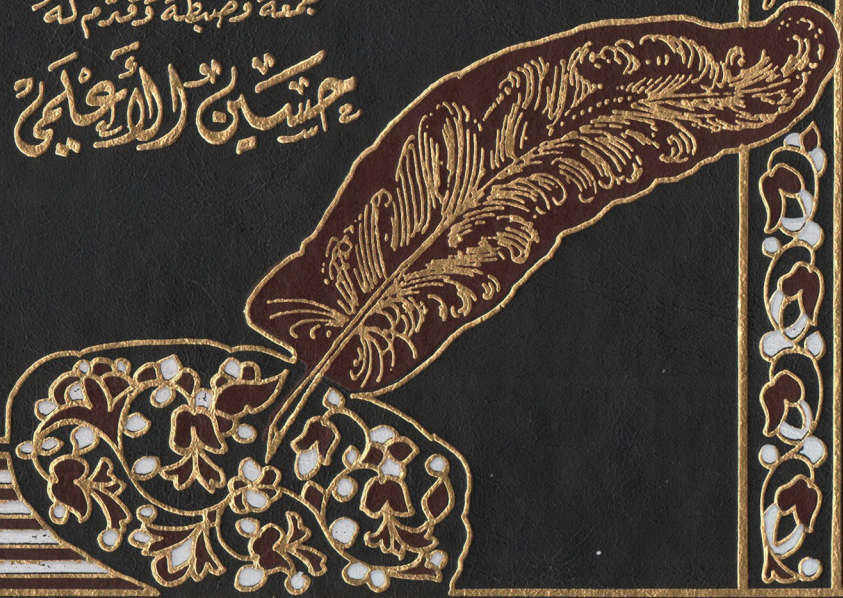 جمعه وضبطه وقدم له
حسين الأعلمي